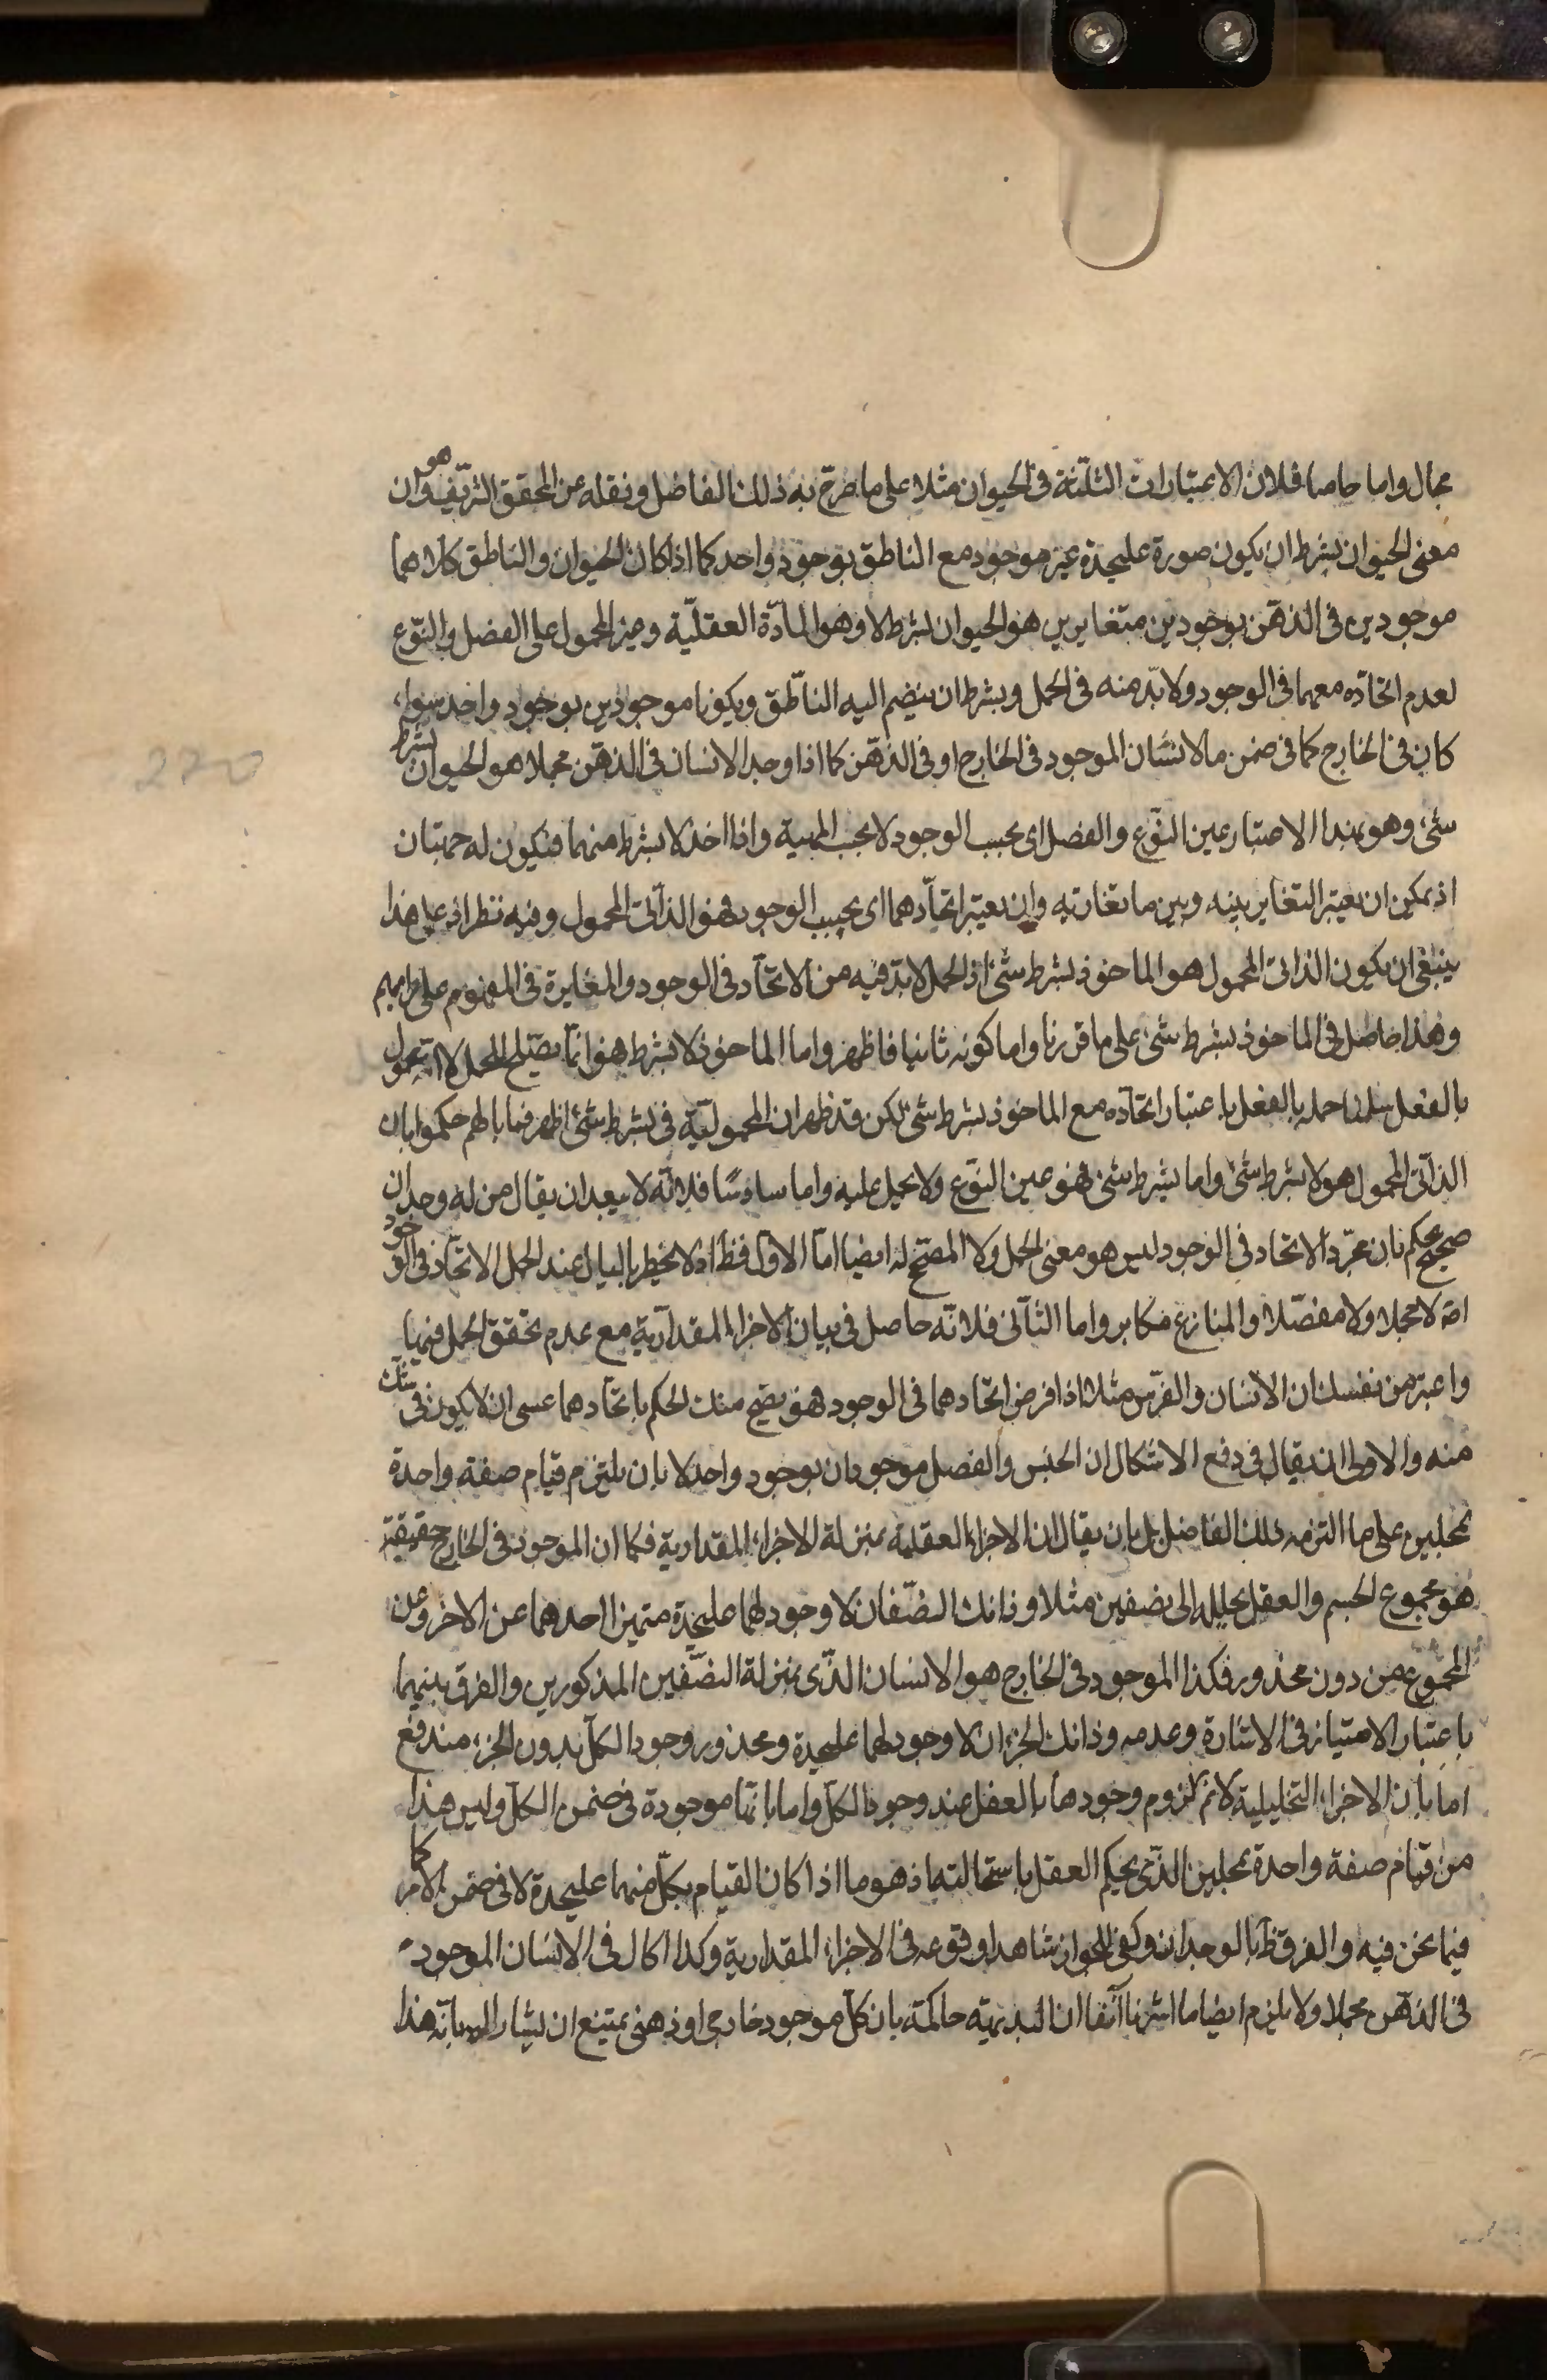 مجال واما خامسا فلان الاعتبارات الثلثة فى الحيوان مثلا على ما صرّح به ذلك الفاضل ونقله عن المحقق الشريف هو ان
معنى الحيوان بشرط ان يكون صورة عليحدة غير موجود مع الناطق بوجود واحد كما اذا كان الحيوان والناطق كلاهما
موجودين فى الذهن بوجودين متغايرين هو الحيوان بشرط لا وهو المادّة العقليّة وغير المحمول على الفصل والنّوع
لعدم اتحاده معهما فى الوجود ولا بدّ منه فى الحمل وبشرط ان ينضم اليه الناطق ويكونا موجودين بوجود واحد سواء
كان فى الخارج كما فى ضمن ما لانسان الموجود فى الخارج او فى الذهن كما اذا وجد الانسان فى الذهن مجملا هو الحيوان بشرط
شئ وهو بهذا الاعتبار عين النّوع والفصل اى بحسب الوجود لا بحسب المهية واذا اخذ لا بشرط منهما فيكون له جهتان
اذ يمكن ان يعتبر التغاير بينه وبين ما تقارنه وان يعتبر اتحادهما اى بحسب الوجود فهو الذاتى المحمول وفيه نظر اذ على هذا
ينبغى ان يكون الذاتى المحمول هو الماخوذ بشرط شئ اذ الحمل لا بدّ فيه من الاتحاد فى الوجود والمغايرة فى المفهوم على رايهم
وهذا حاصل فى الماخوذ بشرط شئ على ما قررنا واما كونه ثانيا فاظهر واما الماخوذ لا بشرط فهو انما يصلح للحمل لا انه محمول
بالفعل سلمنا حمله بالفعل باعتبار اتحاده مع الماخوذ بشرط شئ لكن قد ظهر ان المحموليّة فى بشرط شئ اظهر فما بالهم حكموا بان
الذاتى المحمول هو لا بشرط شئ واما بشرط شئ فهو عين النوع ولا يحمل عليه واما سادسًا فلانّه لا يبعد ان يقال من له وجدان
صحيح يحكم بان مجرّد الاتحاد فى الوجود ليس هو معنى الحمل ولا المصحّح له ايضا امّا الاول فظ اذ لا يخطر بالبال عند الحمل الاتحاد فى الوجود
اصّ لا مجملا ولا مفصّلا والمنازع مكابر واما الثانى فلانّه حاصل فى بيان الاجزاء المقداريّة مع عدم تحقق الحمل فيها
واعتبر من نفسك ان الانسان والفرس مثلا اذا فرض اتحادهما فى الوجود فهو يصح منك الحكم باتحادهما عسى ان لا يكون فى شك
منه والاولى ان يقال فى دفع الاشكال ان الجنس والفصل موجودان بوجود واحد لا بان يلتزم قيام صفة واحدة
بمحلين على ما التزمه ذلك الفاضل بل بان يقال ان الاجزاء العقلية بمنزلة الاجزاء المقدارية فكما ان الموجود فى الخارج حقيقة
هو مجموع الجسم والعقل يحلله الى نصفين مثلا وذانك النصفان لا وجود لهما عليحدة متميزا احدهما عن الاخر وعن
المجموع من دون محذور فكذا الموجود فى الخارج هو الانسان الذى بمنزلة النصفين المذكورين والفرق بينهما
باعتبار الامتياز فى الاشارة وعدمه وذانك الجزءان لا وجود لهما عليحدة ومحذور وجود الكل بدون الجزء مندفع
اما بان الاجزاء التحليلية لا نم لزوم وجودها بالعفل عند وجود الكل واما بانها موجودة فى ضمن الكل وليس هذا
من قيام صفة واحدة بمحلين الذى يحكم العقل باستحالته اذ هو ما اذا كان القيام بكل منهما عليحدة لا فى ضمن الامر كما
فيما نحن فيه والفرق ظ بالوجدان وكفى للجواز شاهدا وقوعه فى الاجزاء المقدارية وكذا الحال فى الانسان الموجود
فى الذهن مجملا ولا يلزم ايضا ما اشرنا آنفا ان البديهيّة حاكمة بان كل موجود خارجى او ذهنى يمتنع ان يشار اليه بانّه هذا
270